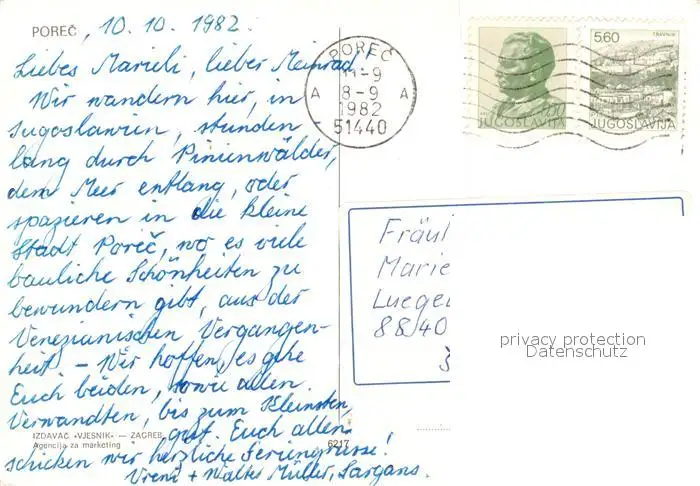 POREČ, 10.10.1982.
Liebes Marieli, lieber Meinrad
Wir wandern hier, in
Jugoslawien, stunden
lang durch Pinienwälder,
dem Meer entlang, oder
spazieren in die kleine
Stadt Poreč, wo es viele
bauliche Schönheiten zu
bewundern gibt, aus der
Venezianischen Vergangen-
heit. - Wir hoffen, es gehe
Euch beiden, sowie allen
Verwandten, bis zum Kleinsten,
gut. Euch allen
schicken wir herzliche Feriengrüsse!
Vreni + Walter Müller, Sargans.
IZDAVAČ «VJESNIK» — ZAGREB
Agencija za marketing
6217
POREČ
11-9
A 8-9 A
1982
51440
JUGOSLAVIJA
5.60
TRAVNIK
JUGOSLAVIJA
Fräul
Marie
Luege
8840
privacy protection
Datenschutz